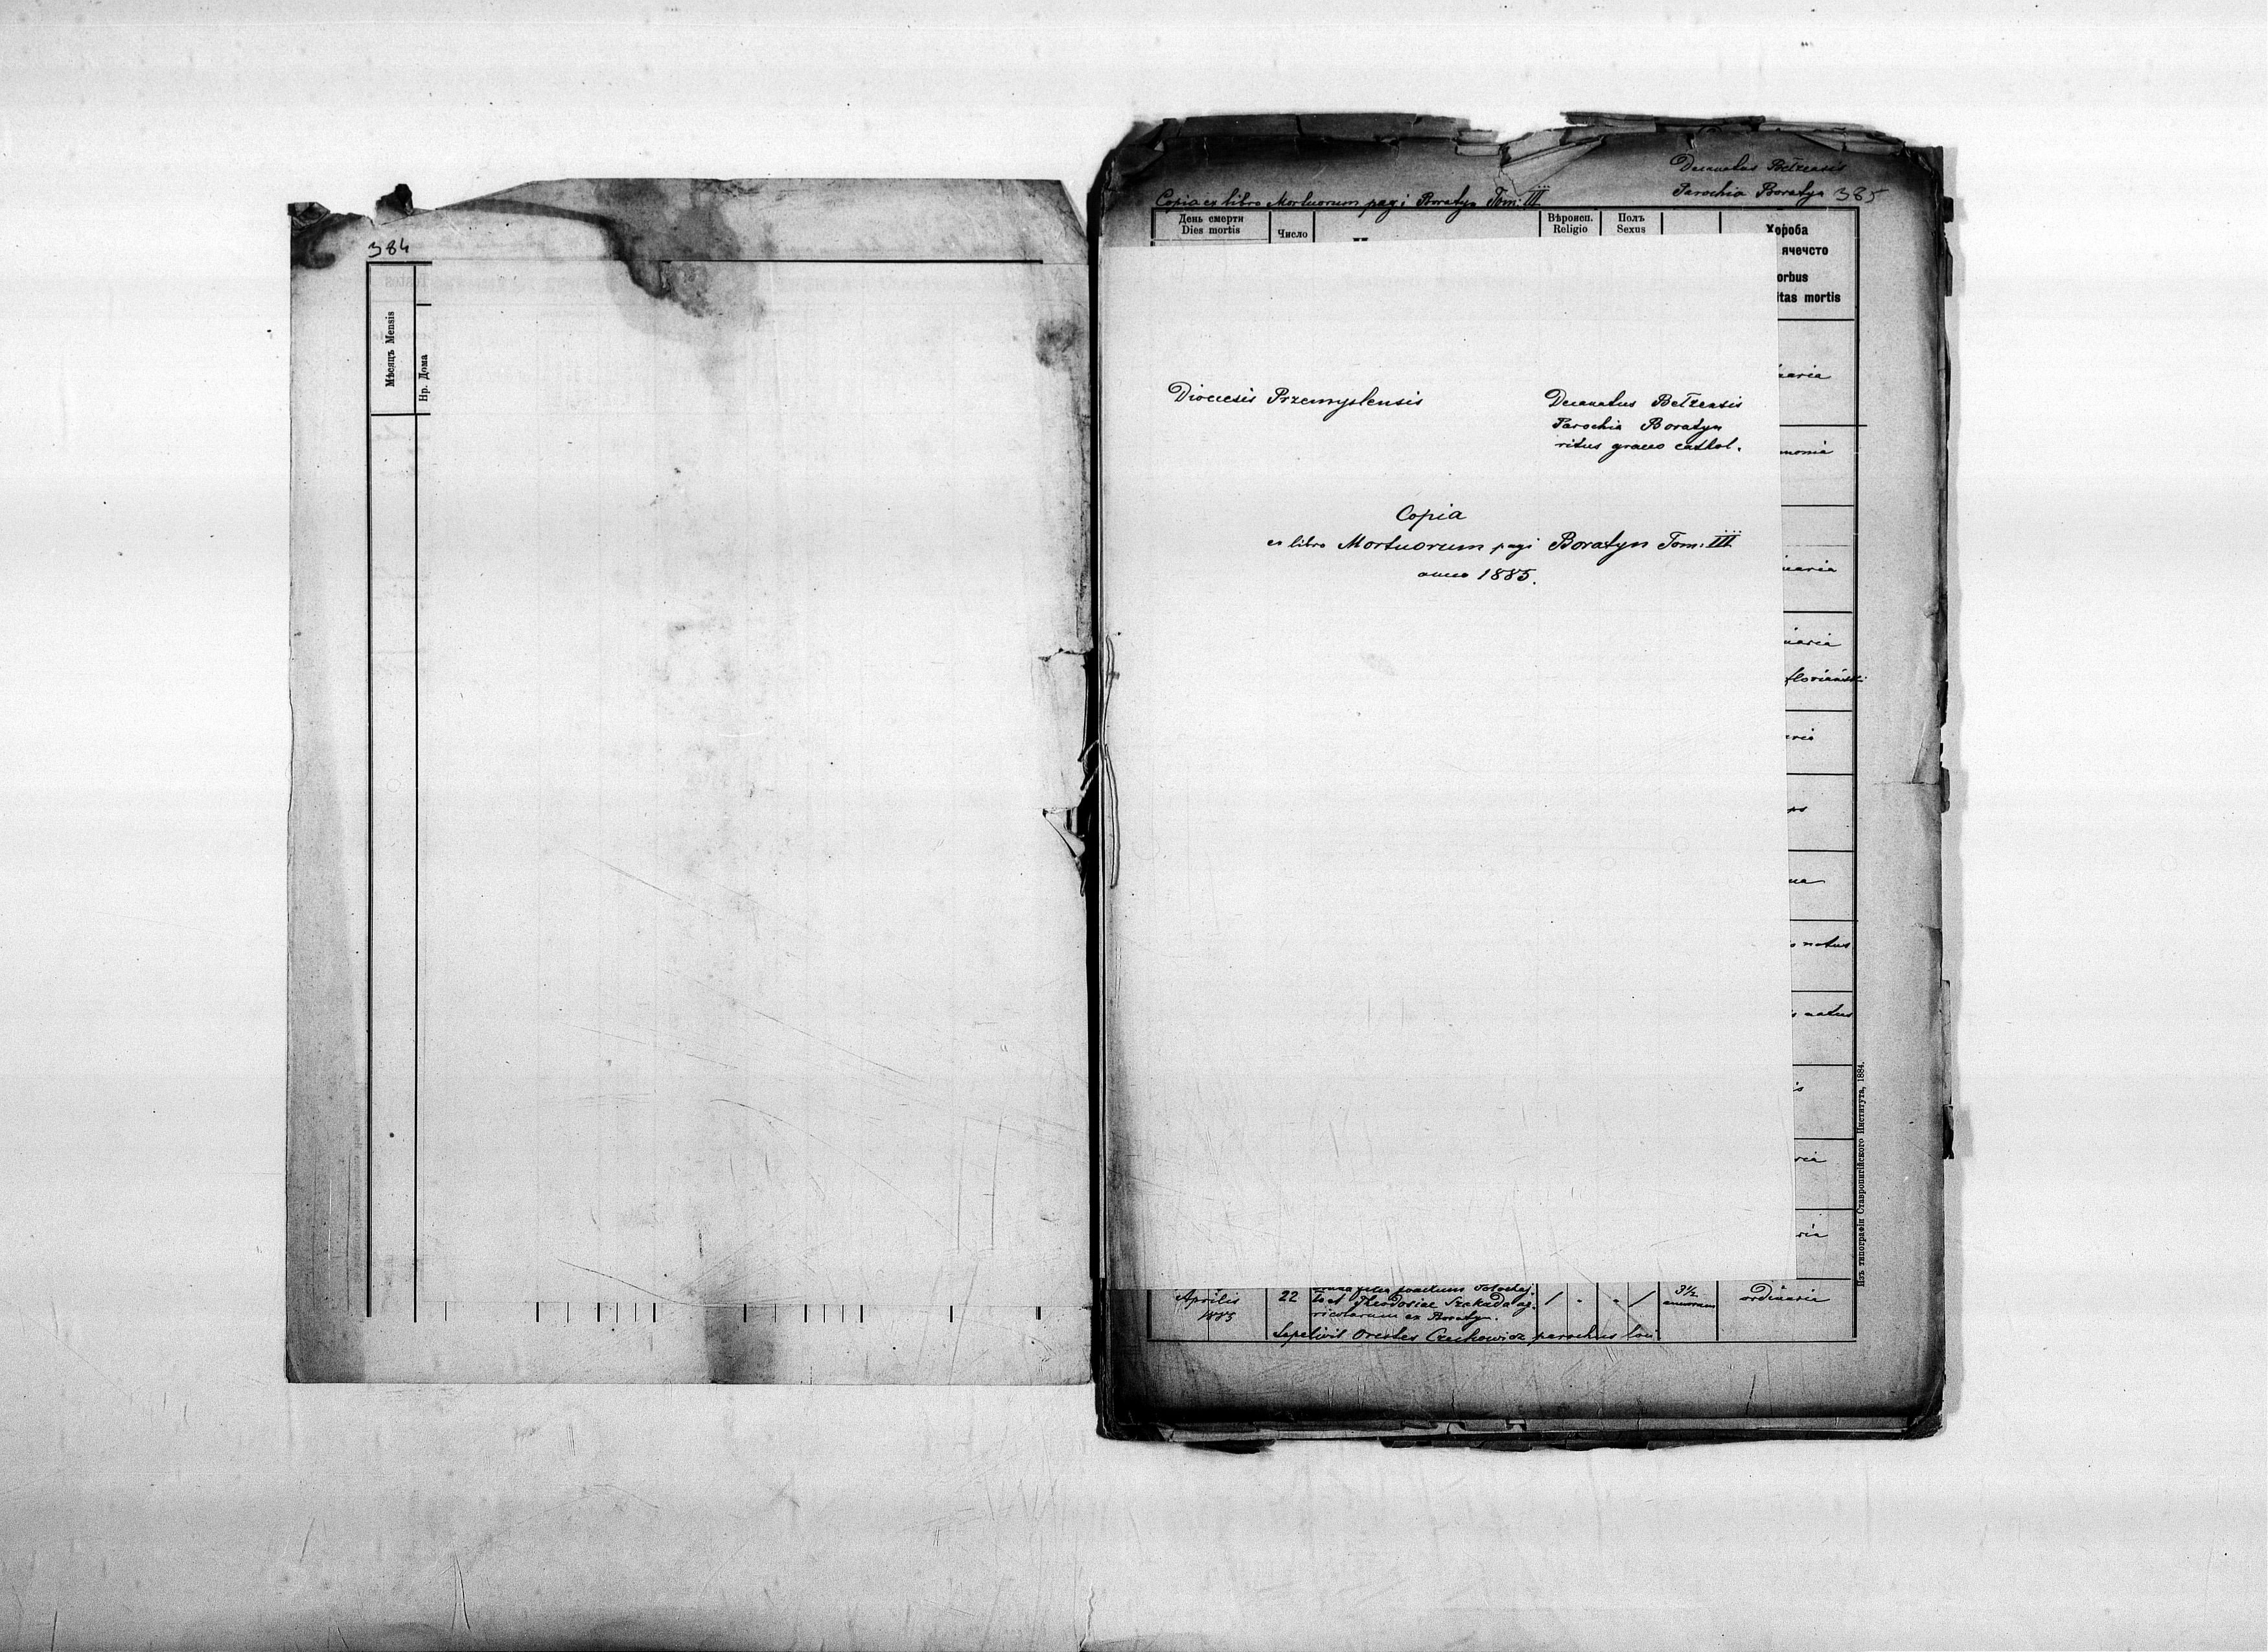 384
Мѣсяць Mensis
Нр. Дома
Decanatus Bełzensis
Parochia Boratyn 385
Copia ex libro Mortuorum pagi Boratyn Tom: III
День смерти
Dies mortis
Число
Вѣроисп.
Religio
Полъ
Sexus
Хороба
ячечсто
orbus
itas mortis
Dioecesis Przemyslensis
Decanatus Bełzensis
Parochia Boratyn
ritus graeco cathol.
Copia
ex libro Mortuorum pagi Boratyn Tom: III
anno 1885.
natus
natus
Aprilis
1885
22
et Theodosiae Szakada ag-
ricolarum ex Boratyn.
3½
annorum
ordinaria
Sepelivit Orestes Czechowicz parochus loci.
Изъ типографіи Ставропигійского Института, 1884.